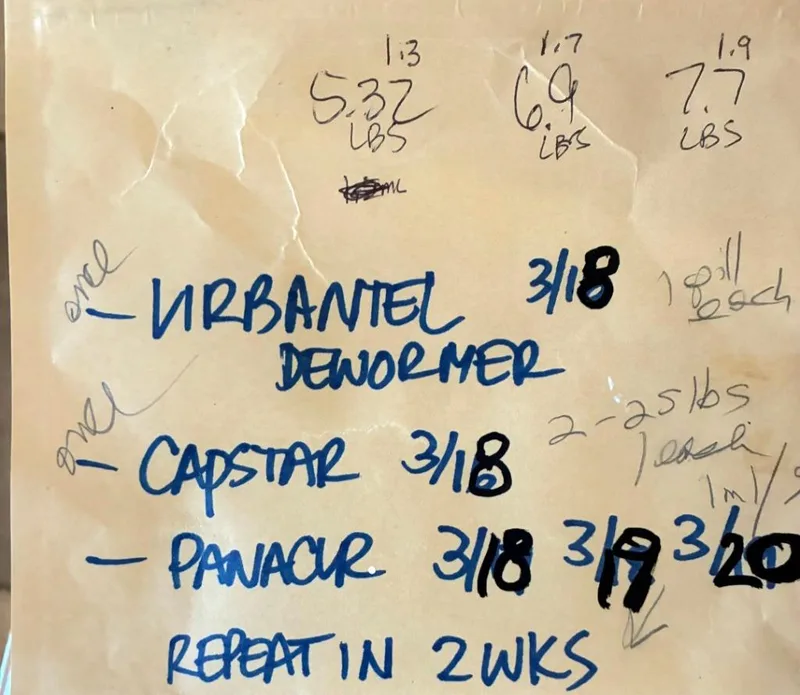 1.3 1.7 1.9
5.32 6.9 7.7
LBS LBS LBS
ML
once
- URBANTEL 3/18 1 pill
each
DEWORMER
once
2-25 lbs
- CAPSTAR 3/18 1 each
1 ml/
- PANACUR 3/18 3/19 3/20
REPEAT IN 2 WKS